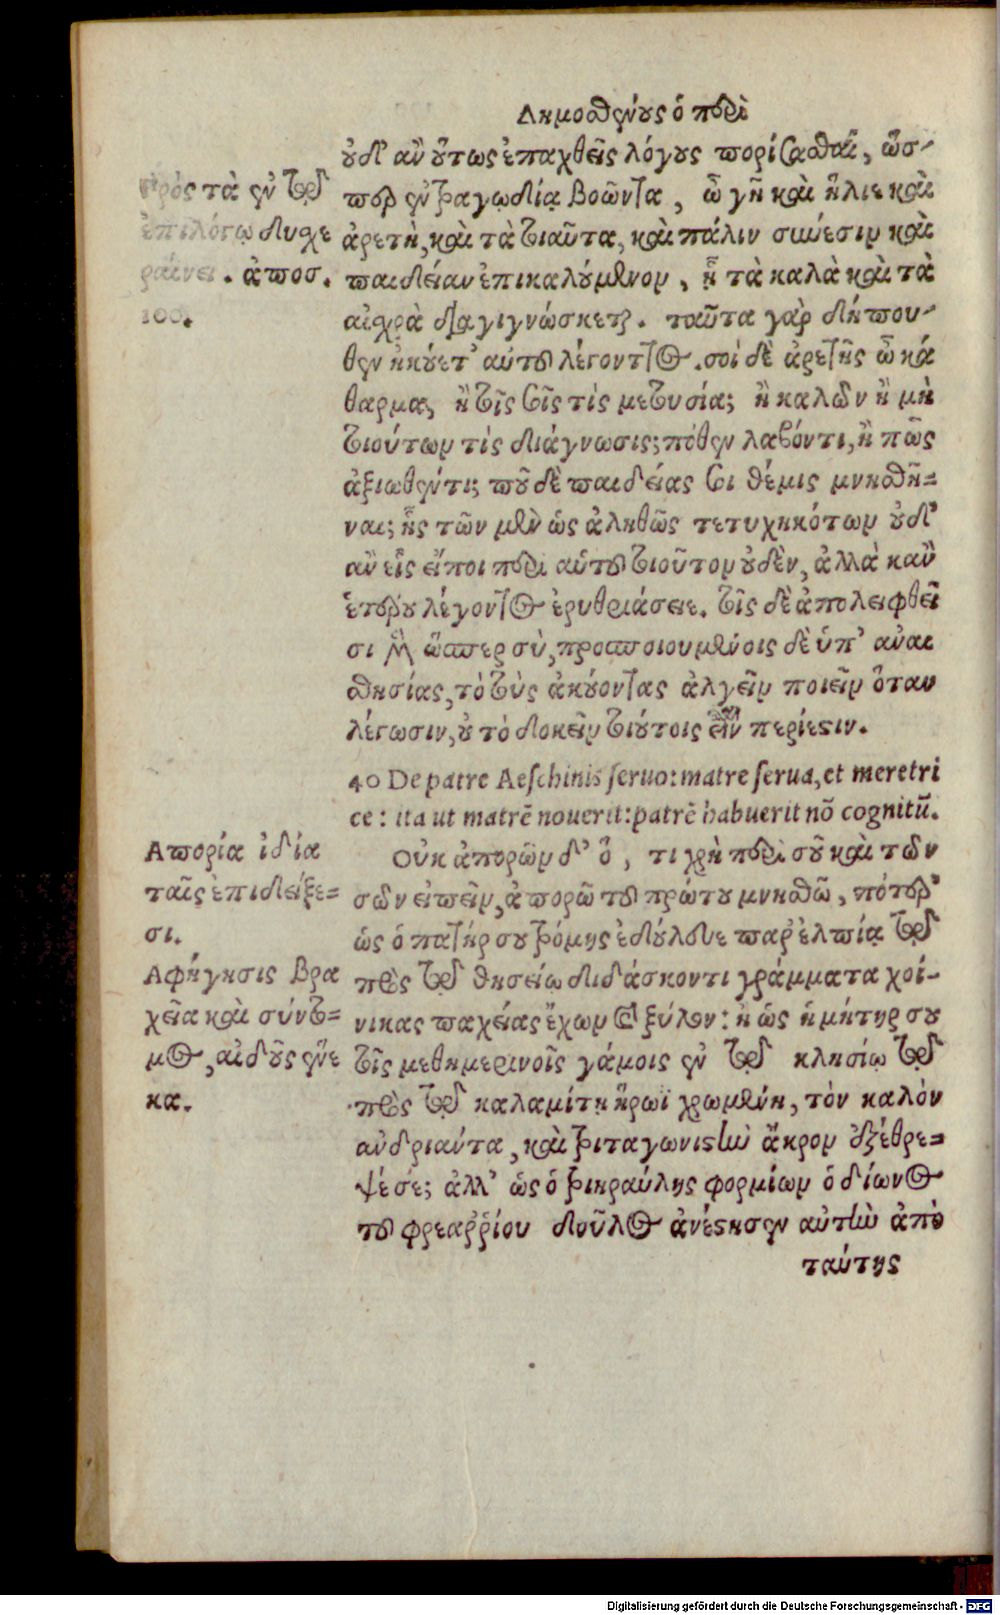 Δημοσθένους ὁ περὶ
οὐδ' ἂν οὕτως ἐπαχθεῖς λόγους πορίσασθαι, ὥσ-
περ ἐν τραγῳδίᾳ βοῶντα, ὦ γῆ καὶ ἥλιε καὶ
ἀρετὴ, καὶ τὰ τοιαῦτα, καὶ πάλιν σύνεσιν καὶ
παιδείαν ἐπικαλούμενον, ᾗ τὰ καλὰ καὶ τὰ
αἰσχρὰ διαγιγνώσκεται. ταῦτα γὰρ δήπου-
θεν ἠκούετ' αὐτοῦ λέγοντος. σοὶ δὲ ἀρετῆς ὦ κά
θαρμα, ἢ τοῖς σοῖς τὶς μετουσία; ἢ καλῶν ἢ μὴ
τοιούτων τὶς διάγνωσις; πόθεν λαβόντι, ἢ πῶς
ἀξιωθέντι; ποῦ δὲ παιδείας σοι θέμις μνησθῆ-
ναι; ἧς τῶν μὲν ὡς ἀληθῶς τετυχηκότων οὐδ'
ἂν εἷς εἴποι περὶ αὑτοῦ τοιοῦτον οὐδὲν, ἀλλὰ κἂν
ἑτέρου λέγοντος ἐρυθριάσειε. τοῖς δὲ ἀπολειφθεῖ
σι μὲν ὥσπερ σὺ, προσποιουμένοις δὲ ὑπ' ἀναι
σθησίας, τὸ τοὺς ἀκούοντας ἀλγεῖν ποιεῖν ὅταν
λέγωσιν, οὐ τὸ δοκεῖν τοιούτοις εἶναι περίεστιν.
40 De patre Aeschinis seruo: matre serua, et meretri
ce: ita ut matrē nouerit: patrē habuerit nō cognitū.
Οὐκ ἀπορῶν δ' ὅ, τι χρὴ περὶ σοῦ καὶ τῶν
σῶν εἰπεῖν, ἀπορῶ τοῦ πρώτου μνησθῶ, πότερ'
ὡς ὁ πατήρ σου τρόμης ἐδούλευε παρ' ἐλπίᾳ τῷ
πρὸς τῷ θησείῳ διδάσκοντι γράμματα χοί-
νικας παχείας ἔχων καὶ ξύλον: ἢ ὡς ἡ μήτηρ σου
τοῖς μεθημερινοῖς γάμοις ἐν τῷ κλησίῳ τῷ
πρὸς τῷ καλαμίτῃ ἥρωϊ χρωμένη, τὸν καλὸν
ἀνδριάντα, καὶ τριταγωνιστὴν ἄκρον ἐξέθρε-
ψέ σε; ἀλλ' ὡς ὁ τριηραύλης φορμίων ὁ δίωνος
τοῦ φρεαῤῥίου δοῦλος ἀνέστησεν αὐτὴν ἀπὸ
ταύτης
Πρὸς τὰ ἐν τῷ
ἐπιλόγῳ δυσχε
ραίνει. ἀποσ.
100.
Απορία ἰδία
ταῖς ἐπιδείξε-
σι.
Αφήγησις βρα
χεῖα καὶ σύντο-
μος, αἰδοῦς ἕνε
κα.
Digitalisierung gefördert durch die Deutsche Forschungsgemeinschaft - DFG